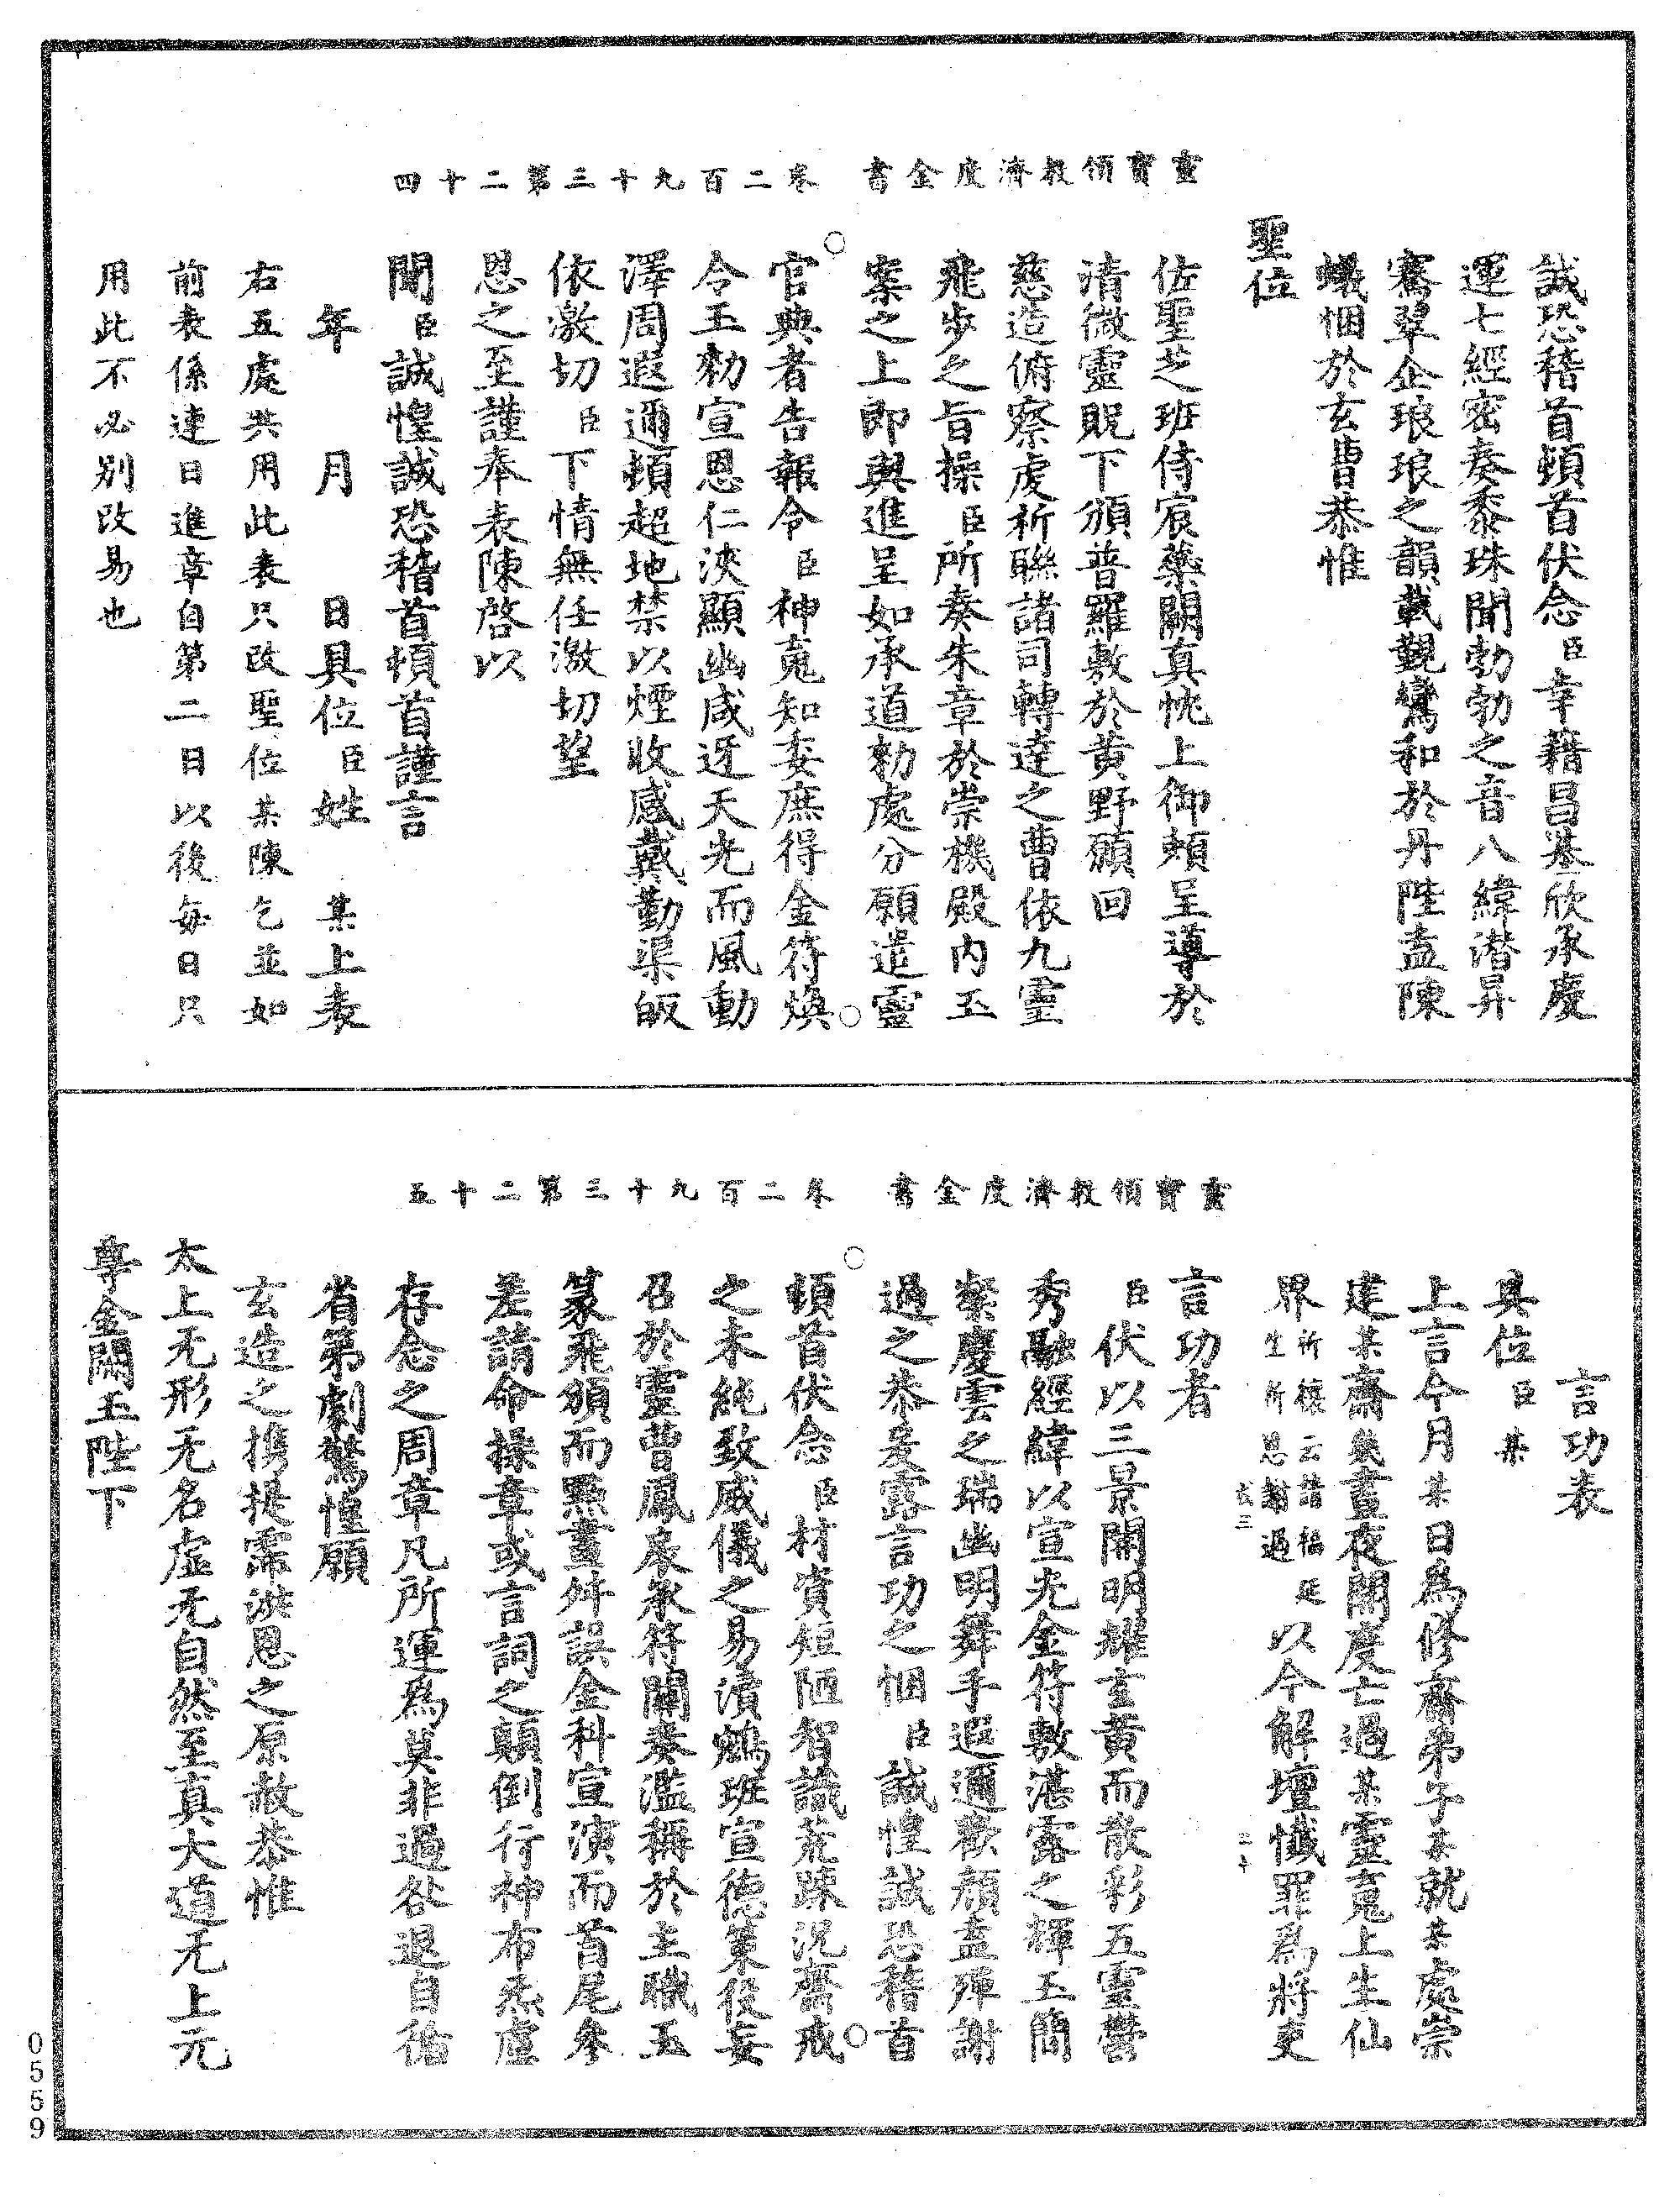 靈寶領教濟度金書　卷二百九十三第二十四
誠恐稽首頓首伏念臣幸藉昌基欣承慶
運七經密奏黍珠聞勃勃之音八緯潜昇
騫翠企琅琅之韻載觀鸞和於丹陛盍陳
蟻悃於玄曹恭惟
聖位
佐聖芝班侍宸蘂闕真忱上御頼呈導於
清微靈貺下頒普羅敷於黄野願回
慈造俯察虔祈聯諸司轉達之曹依九靈
飛步之旨操臣所奏朱章於崇機殿内玉
案之上即與進呈如承道勑處分願遣靈
官典者告報令臣神䰟知委庶得金符煥
令玉勑宣恩仁浹顯幽咸迓天光而風動
澤周遐邇頓超地禁以煙收感戴勤渠皈
依激切臣下情無任激切望
恩之至謹奉表陳啓以
聞臣誠惶誠恐稽首頓首謹言
年　月　日具位臣姓　某上表
右五處共用此表只改聖位某陳乞並如
前表係連日進章自第二日以後每日只
用此不必别改易也
靈寶領教濟度金書　卷二百九十三第二十五
言功表
具位臣某
上言今月某日為修齋弟子某就某處崇
建某齋幾晝夜開度亡過某靈䰟上生仙
界祈禳云請福延生祈恩謝過以今解壇懺罪為將吏
言功者
臣伏以三景開明耀玄黄而散彩五靈鬱
秀融經緯以宣光金符敷湛露之輝玉簡
粲慶雲之瑞幽明舞手遐邇歡顔盍殫謝
過之恭爰露言功之悃臣誠惶誠恐稽首
頓首伏念臣材資短陋智識荒踈況齋戒
之未純致威儀之易瀆鵷班宣德策役妄
召於靈曹鳳扆承符關奏濫稱於主職玉
篆飛頒而㸃畫舛誤金科宣演而首尾參
差請命操章或言詞之顛倒行神布炁虚
存念之周章凡所運為莫非過咎退自循
省第劇驚惶願
玄造之擕提霈洪恩之原赦恭惟
太上无形无名虚无自然至真大道无上元
尊金闕玉陛下
0559